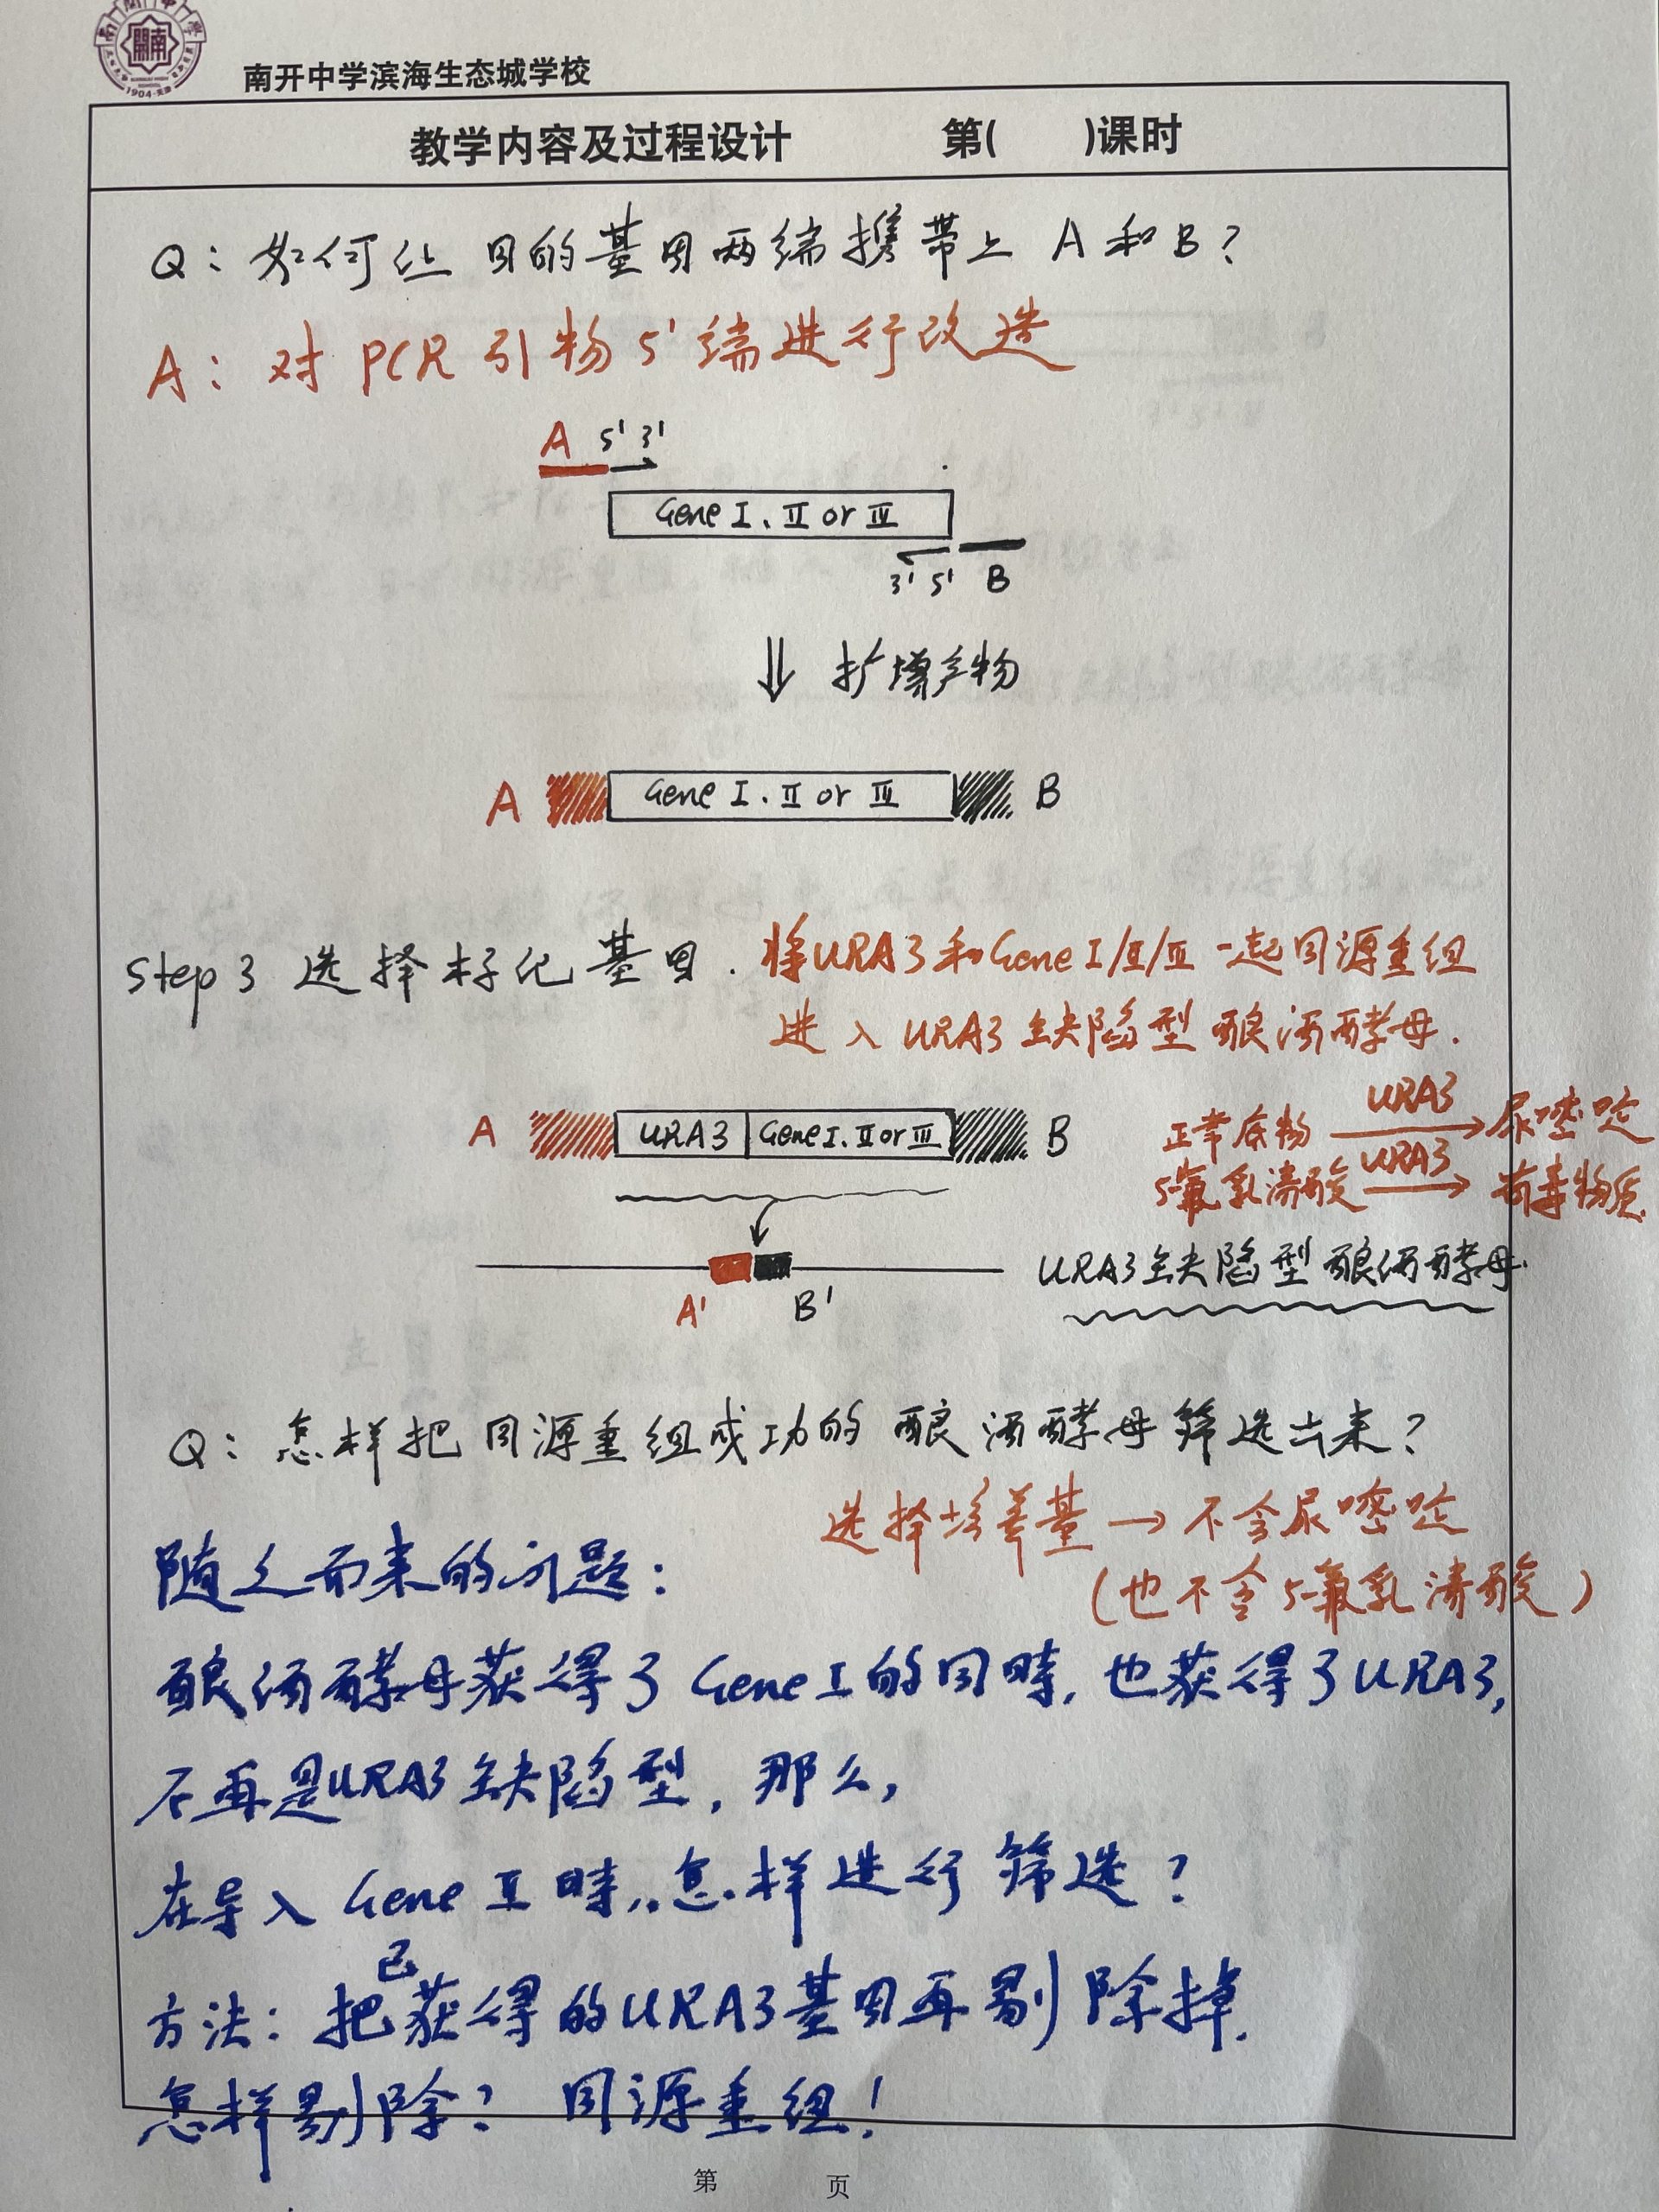 南开中学
1904·天津
南开中学滨海生态城学校
教学内容及过程设计 第( )课时
Q：如何让目的基因两端携带上 A和B？
A：对PCR引物5'端进行改造
A 5' 3'
Gene I、II or III
3' 5' B
⇓ 扩增产物
A Gene I、II or III B
Step 3 选择标记基因. 将URA3和Gene I/II/III 一起同源重组
进入URA3缺陷型酿酒酵母.
A URA3 Gene I、II or III B
正常底物 URA3→ 尿嘧啶
5-氟乳清酸 URA3→ 有毒物质
URA3缺陷型酿酒酵母
A' B'
Q：怎样把同源重组成功的酿酒酵母筛选出来？
选择培养基→不含尿嘧啶
(也不含5-氟乳清酸)
随之而来的问题：
酿酒酵母获得了Gene I的同时，也获得了URA3，
不再是URA3缺陷型，那么，
在导入Gene II时，怎样进行筛选？
方法：把已获得的URA3基因再剔除掉.
怎样剔除？同源重组！
第 页